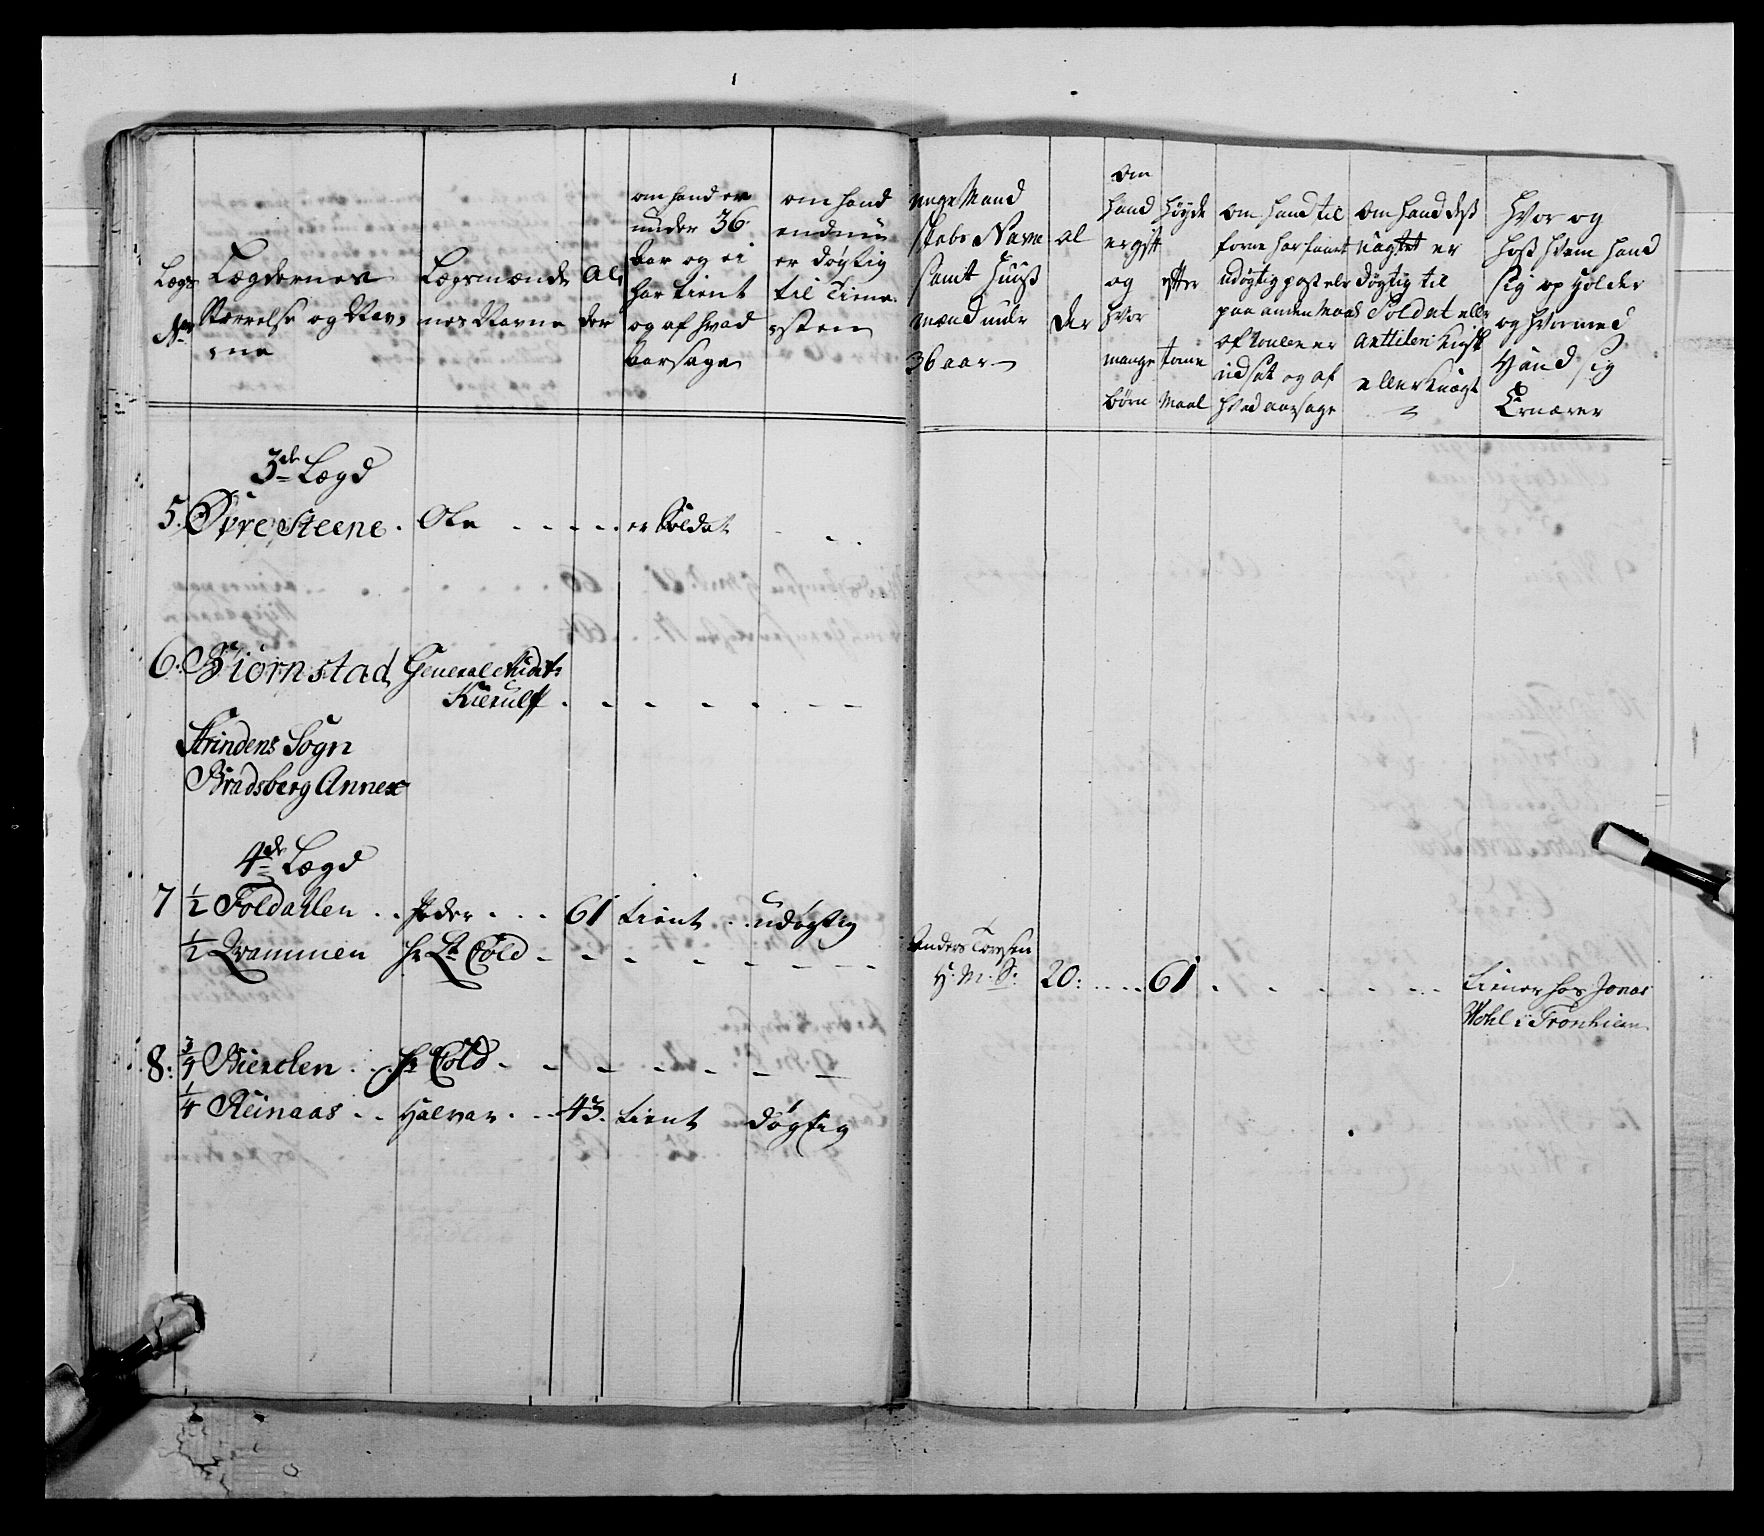 Lægs
No
Lægdernes
Størrelse og Nav,
ne
Lægsmænde
nes Navne
Al,
der
om hand er
under 36
aar og ei
har tient
og af hvad
aarsage
om hand
endnu
er døgtig
til Tiene
sten
unge Mand
skabs Navne
samt Huus
mænd under
36 aar
al
der
Om
hand
er gift
og
hvor
mange
børn
Høyde
efter
tome
Maal
om hand til
forne har faaet
udøgtig pas eler
paa anden Maade
af Roulen er
udsat og af
hvad aarsage
om hand des
uagtet er
døgtig til
Soldat eller
eller Knægt
Hvor og
hos hvem hand
sig op holder
og hvormed
Hand sig
Ernærer
3de Lægd
5. Øvre Steene . Ole . . . . . er Soldat
6. Biörnstad General
Kierulff
Strindens Sogn
Bradsberg Annex
4de Lægd
7 1/2 Foldahlen . . Peder . . . 61 tient . . udøgtig
1/2 Qvammen Hr Lt Cold
Anders Torssen
H. M. S: 20: . . . . 61 . tiener hos Jonas
Wohl i Tronhiem
8: 3/4 Bierchen . . Hr Cold
1/4 Reinaas . . Halvar . . 43. tient døgtig